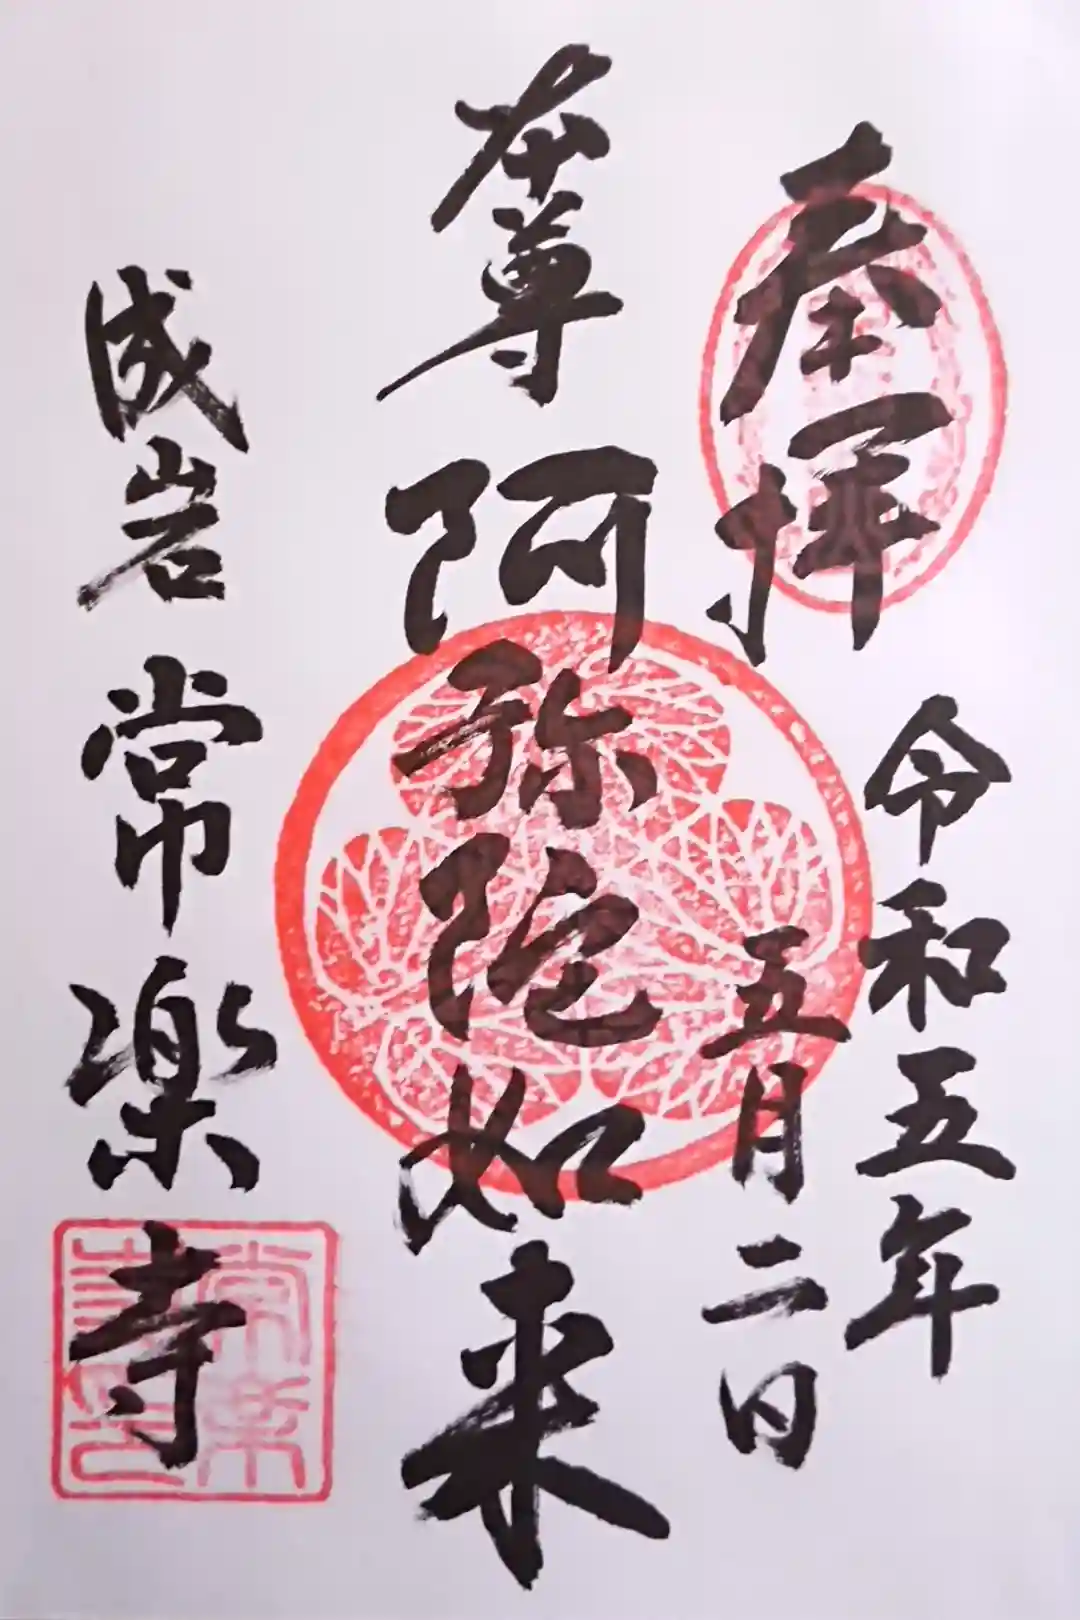 奉拝
令和五年
五月二日
本尊 阿弥陀如来
成岩 常楽寺
常楽